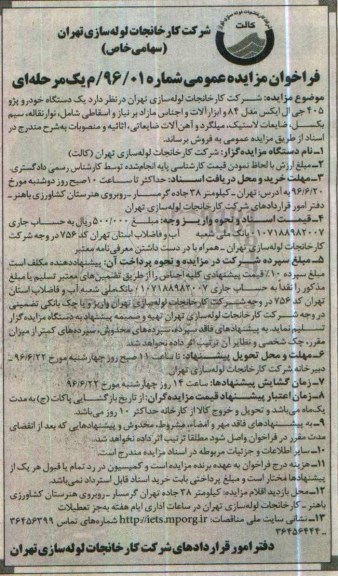 کالت
شرکت کارخانجات لوله سازی تهران
(سهامی خاص)
فراخوان مزایده عمومی شماره ۹۶/۰۱/م یک مرحله‌ای
موضوع مزایده: شرکت کارخانجات لوله‌سازی تهران در نظر دارد یک دستگاه خودرو پژو
۴۰۵ جی ال ایکس مدل ۸۴ و ابزارآلات و اجناس مازاد بر نیاز و اسقاطی شامل، نوارنقاله، سیم
بکسل، ضایعات لاستیک، میلگرد و آهن‌آلات ضایعاتی، اثاثیه و منصوبات به‌شرح مندرج در
اسناد از طریق مزایده عمومی به فروش برساند.
۱-نام دستگاه مزایده‌گزار: شرکت کارخانجات لوله‌سازی تهران (کالت)
۲-مبلغ ارزش با لحاظ نمودن قیمت کارشناسی پایه انجام‌شده توسط کارشناس رسمی دادگستری.
۳-مهلت خرید و محل دریافت اسناد: حداکثر تا ساعت ۱۰ صبح روز دوشنبه مورخ
۹۶/۶/۲۰ به آدرس، تهران- کیلومتر ۳۸ جاده گرمسار- روبروی هنرستان کشاورزی باهنر-
دفتر امور قراردادهای شرکت کارخانجات لوله‌سازی تهران
۴-قیمت اسناد و نحوه واریز وجه: مبلغ ۵۰۰/۰۰۰ ریال به حساب جاری
۰۱۰۷۱۸۸۹۸۲۰۰۷ بانک ملی شعبه آب و فاضلاب استان تهران کد ۷۵۶ در وجه شرکت
کارخانجات لوله‌سازی تهران - همراه با در دست داشتن معرفی‌نامه معتبر
۵-مبلغ سپرده شرکت در مزایده و نحوه پرداخت آن: پیشنهاددهنده مکلف است
مبلغ سپرده ۱۰٪ قیمت پیشنهادی کلیه اجناس را از طریق تضمین‌های معتبر تسلیم یا مبلغ
مذکور را نقداً به حساب جاری ۰۱۰۷۱۸۸۹۸۲۰۰۷ بانک ملی شعبه آب و فاضلاب استان
تهران کد ۷۵۶ در وجه شرکت کارخانجات لوله‌سازی تهران واریز و یا چک بانکی تضمینی
در وجه شرکت کارخانجات لوله‌سازی تهران تهیه و ضمیمه پیشنهاد به دستگاه مزایده گزار
تسلیم نماید. به پیشنهادهای فاقد سپرده، سپرده‌های مخدوش، سپرده‌های کمتر از میزان
مقرر، چک شخصی و نظایر آن ترتیب اثر داده نخواهد شد.
۶-مهلت و محل تحویل پیشنهاد: تا ساعت ۱۱ صبح روز چهارشنبه مورخ ۹۶/۶/۲۲-
دبیرخانه شرکت کارخانجات لوله‌سازی تهران
۷-زمان گشایش پیشنهادها: ساعت ۱۴ روز چهارشنبه مورخ ۹۶/۶/۲۲
۸-زمان اعتبار پیشنهاد قیمت مزایده‌گران: از تاریخ بازگشایی پاکات (ج) به مدت
یک‌ماه می‌باشد و تحویل و خروج کالا از کارخانه حداکثر ۱۰ روز می‌باشد.
۹-به پیشنهادهای فاقد مهر و امضاء، مشروط، مخدوش و پیشنهادهایی که بعد از انقضای
مدت مقرر در فراخوان واصل شود مطلقاً ترتیب اثر داده نخواهد شد.
۱۰-سایر اطلاعات و جزئیات مربوطه در اسناد مزایده مندرج است.
۱۱-هزینه درج فراخوان به عهده برنده مزایده است و کمیسیون در رد تمام یا قبول هر یک از
پیشنهادها مختار است و مبلغ پرداختی بابت خرید اسناد قابل استرداد نمی‌باشد.
۱۲-محل بازدید اقلام مزایده: کیلومتر ۳۸ جاده تهران گرمسار - روبروی هنرستان کشاورزی
باهنر- کارخانجات لوله‌سازی تهران در ساعات اداری ایام هفته به‌جز تعطیلات
۱۳-نشانی سایت ملی مناقصات: http://iets.mporg.ir شماره‌های تماس ۳۶۴۵۶۳۹۹
-۳۶۴۵۶۴۴۴
دفتر امور قراردادهای شرکت کارخانجات لوله‌سازی تهران